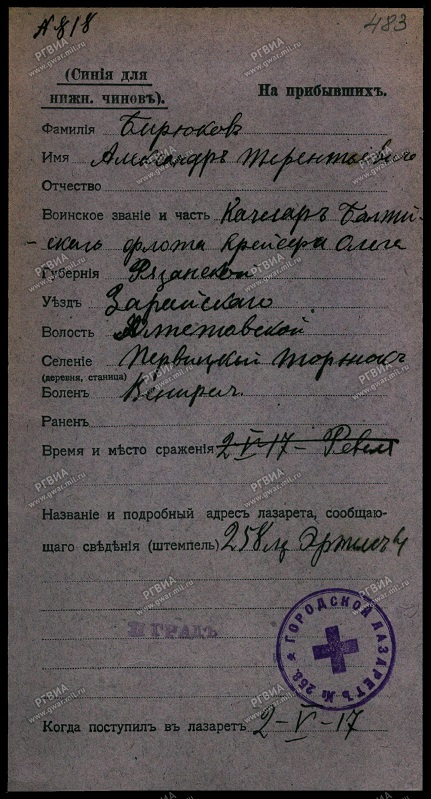 № 818
483
(Синія для
нижн. чиновъ).
На прибывшихъ.
Фамилія Бирюковъ
Имя Александръ Терентьевичъ
Отчество
Воинское званіе и часть Качегаръ Балтій-
-скаго флота Крейсера Олега
Губернія Рязанской
Уѣздъ Зарайскаго
Волость
Селеніе Первицкій Торжокъ
(деревня, станица)
Боленъ Венерич.
Раненъ
Время и мѣсто сраженія 2-V-17- Ревель
Названіе и подробный адресъ лазарета, сообщаю-
щаго свѣдѣнія (штемпель) 258
ПГРАДЪ
ГОРОДСКОЙ ЛАЗАРЕТЪ № 258.
Когда поступилъ въ лазаретъ 2-V-17
РГВИА
www.gwar.mil.ru